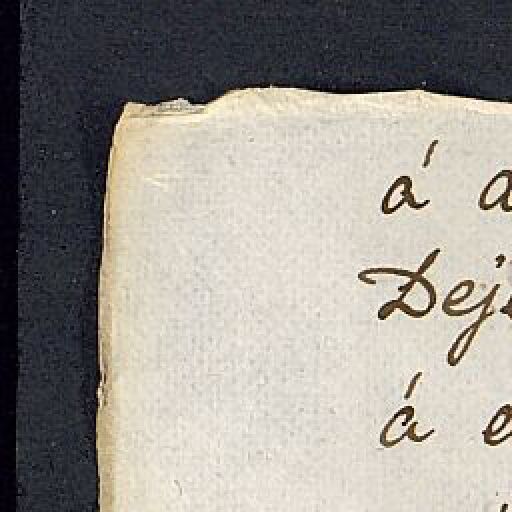 á
Dej
á e